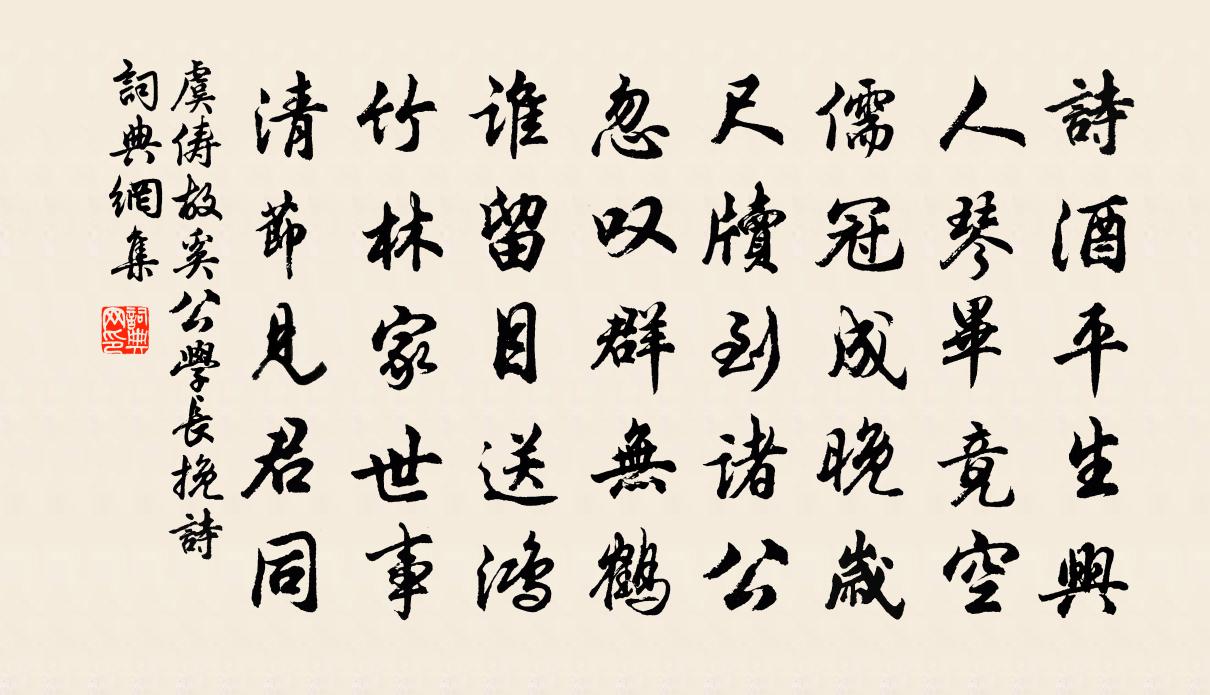 詩酒平生興
人琴畢竟空
儒冠成晚歲
尺牘到諸公
忽叹群無鶴
谁留目送鴻
竹林家世事
清節見君同
虞儔故奚公學長挽詩
詞典網集
詞典网印